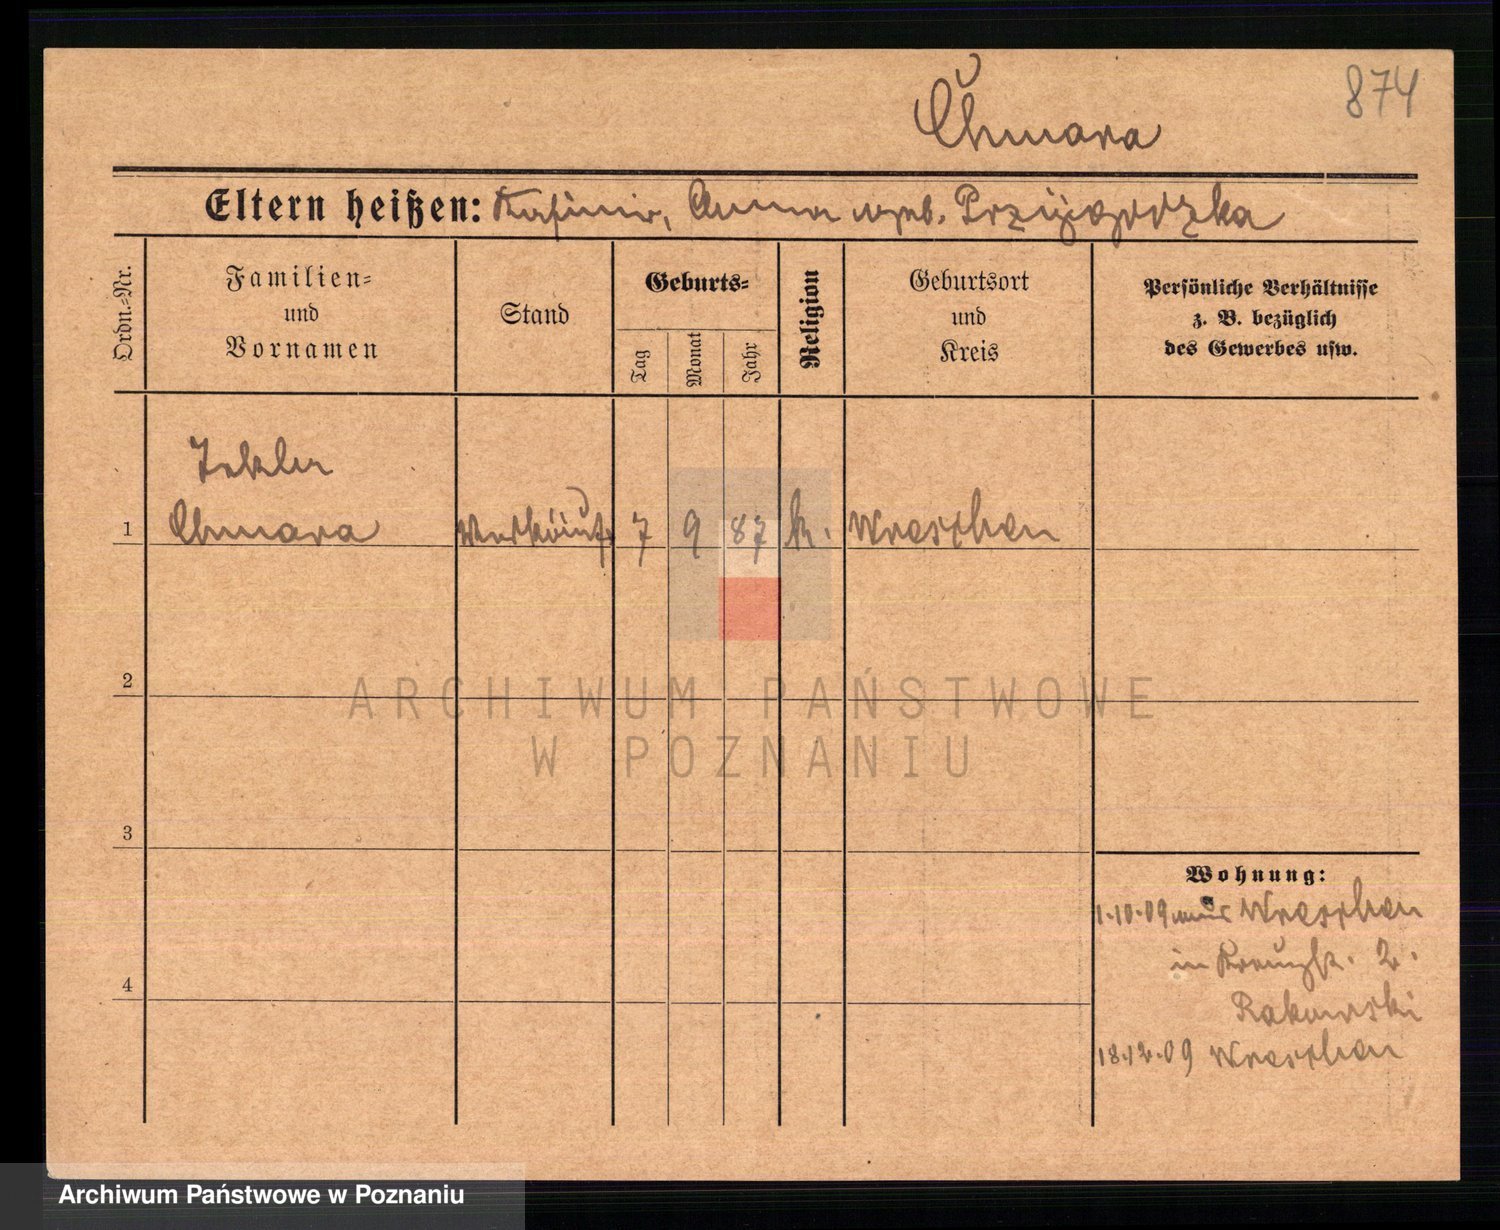 874
Chmara
Eltern heißen: Kasimir, Anna geb. Przygodzka
Ordn.-Nr.
Familien-
und
Vornamen
Stand
Geburts-
Tag
Monat
Jahr
Religion
Geburtsort
und
Kreis
Persönliche Verhältnisse
z. B. bezüglich
des Gewerbes usw.
Chmara
1
7
9
87
k.
Wreschen
2
ARCHIWUM PAŃSTWOWE
W POZNANIU
3
Wohnung:
1.10.09 aus Wreschen
in 2.
4
Rakowski
18.12.09 Wreschen
Archiwum Państwowe w Poznaniu